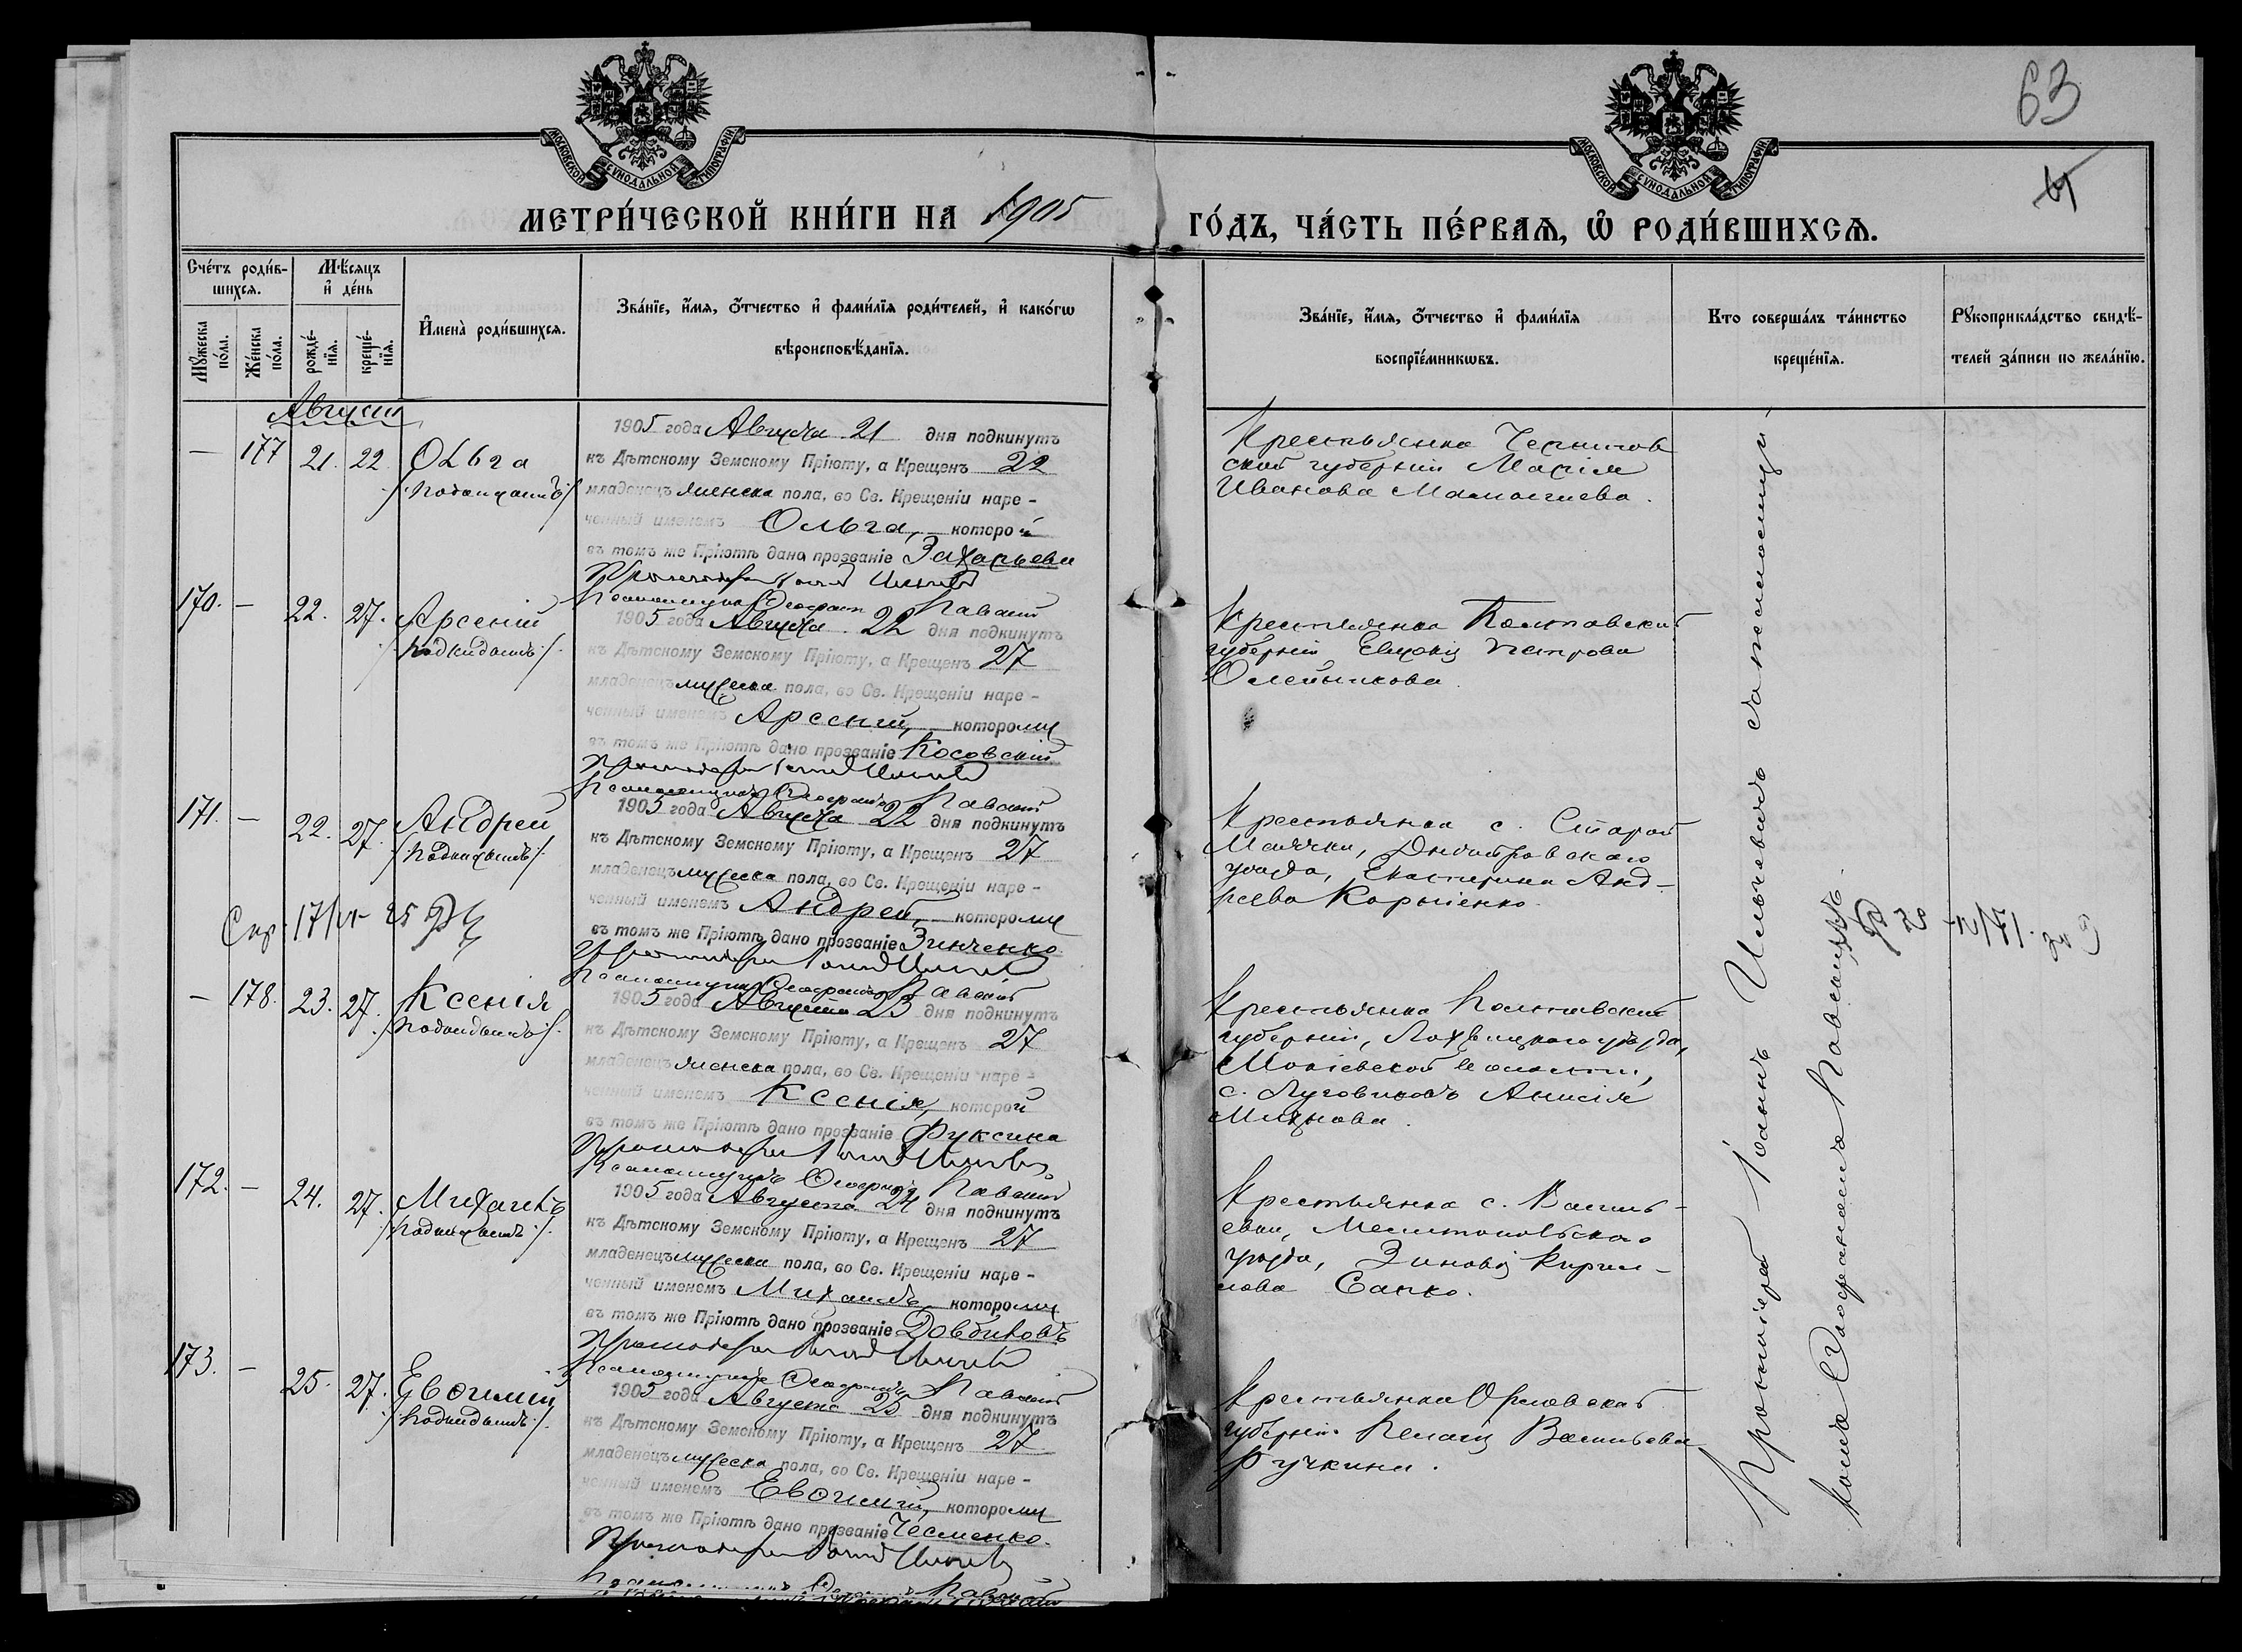 63
МОСКОВСКОЙ СѴНОДАЛЬНОЙ ТИПОГРАФІИ
МОСКОВСКОЙ СѴНОДАЛЬНОЙ ТИПОГРАФІИ
МЕТРИ́ЧЕСКОЙ КНИ́ГИ НА 1905
ГО́ДЪ, ЧА́СТЬ ПЕ́РВАѦ, Ѡ҆ РОДИ́ВШИХСѦ.
Сче́тъ роди́в-
шихсѧ.
Мѣ́сѧцъ
и҆ де́нь
Мꙋ́жеска
по́ла.
Же́нска
по́ла.
рожде́-
нїѧ.
креще́-
нїѧ.
И҆мена̀ роди́вшихсѧ.
Зва́нїе, и҆́мѧ, ѻ҆́тчество и҆ фами́лїѧ роди́телей, и҆ како́гѡ
вѣроисповѣ́данїѧ.
Зва́нїе, и҆́мѧ, ѻ҆́тчество и҆ фами́лїѧ
воспрїе́мникѡвъ.
Кто соверша́лъ та́инство
креще́нїѧ.
Рꙋкоприкла́дство свидѣ́-
телей за́писи по жела́нїю.
Августъ
— 177 21. 22 Ольга
/:подкидышъ:/
1905 года Августа 21 дня подкинутъ
къ Дѣтскому Земскому Пріюту, а Крещенъ 22
младенецъ женска пола, во Св. Крещеніи наре-
ченный именемъ Ольга, которой
въ томъ же Пріютѣ дано прозваніе Захарьева
Крестьянка Чернигов
ской губерніи Марія
Иванова
170. — 22. 27. Арсеній
/:подкидышъ:/
1905 года Августа 22 дня подкинутъ
къ Дѣтскому Земскому Пріюту, а Крещенъ 27
младенецъ мужеска пола, во Св. Крещеніи наре-
ченный именемъ Арсеній, которому
въ томъ же Пріютѣ дано прозваніе Косовскій
Крестьянка Полтавской
губерніи Петрова
Олейникова.
171. — 22. 27. Андрей
/:подкидышъ:/
1905 года Августа 22 дня подкинутъ
къ Дѣтскому Земскому Пріюту, а Крещенъ 27
младенецъ мужеска пола, во Св. Крещеніи наре-
ченный именемъ Андрей, которому
въ томъ же Пріютѣ дано прозваніе Зинченко
Крестьянка с. Старой
Маячки, Днѣпровскаго
уѣзда, Екатерина Анд-
реева Корніенко.
— 178. 23. 27. Ксенія
/:подкидышъ:/
1905 года Августа 23 дня подкинутъ
къ Дѣтскому Земскому Пріюту, а Крещенъ 27
младенецъ женска пола, во Св. Крещеніи наре-
ченный именемъ Ксенія, которой
въ томъ же Пріютѣ дано прозваніе Фуксина
Крестьянка Полтавской
губерніи, Лохвицкаго уѣзда,
волости,
с. Анисія
172. — 24. 27. Михаилъ
/:подкидышъ:/
1905 года Августа 24 дня подкинутъ
къ Дѣтскому Земскому Пріюту, а Крещенъ 27
младенецъ мужеска пола, во Св. Крещеніи наре-
ченный именемъ Михаилъ, которому
въ томъ же Пріютѣ дано прозваніе Довбиковъ
Крестьянка с. Василь-
евки, Мелитопольскаго
уѣзда, Кирил-
лова Санко.
173. — 25. 27. Евѳимій
/:подкидышъ:/
1905 года Августа 25 дня подкинутъ
къ Дѣтскому Земскому Пріюту, а Крещенъ 27
младенецъ мужеска пола, во Св. Крещеніи наре-
ченный именемъ Евѳимій, которому
въ томъ же Пріютѣ дано прозваніе Чесменко.
Крестьянка Орловской
губерніи Васильева
Протоіерей Іоаннъ